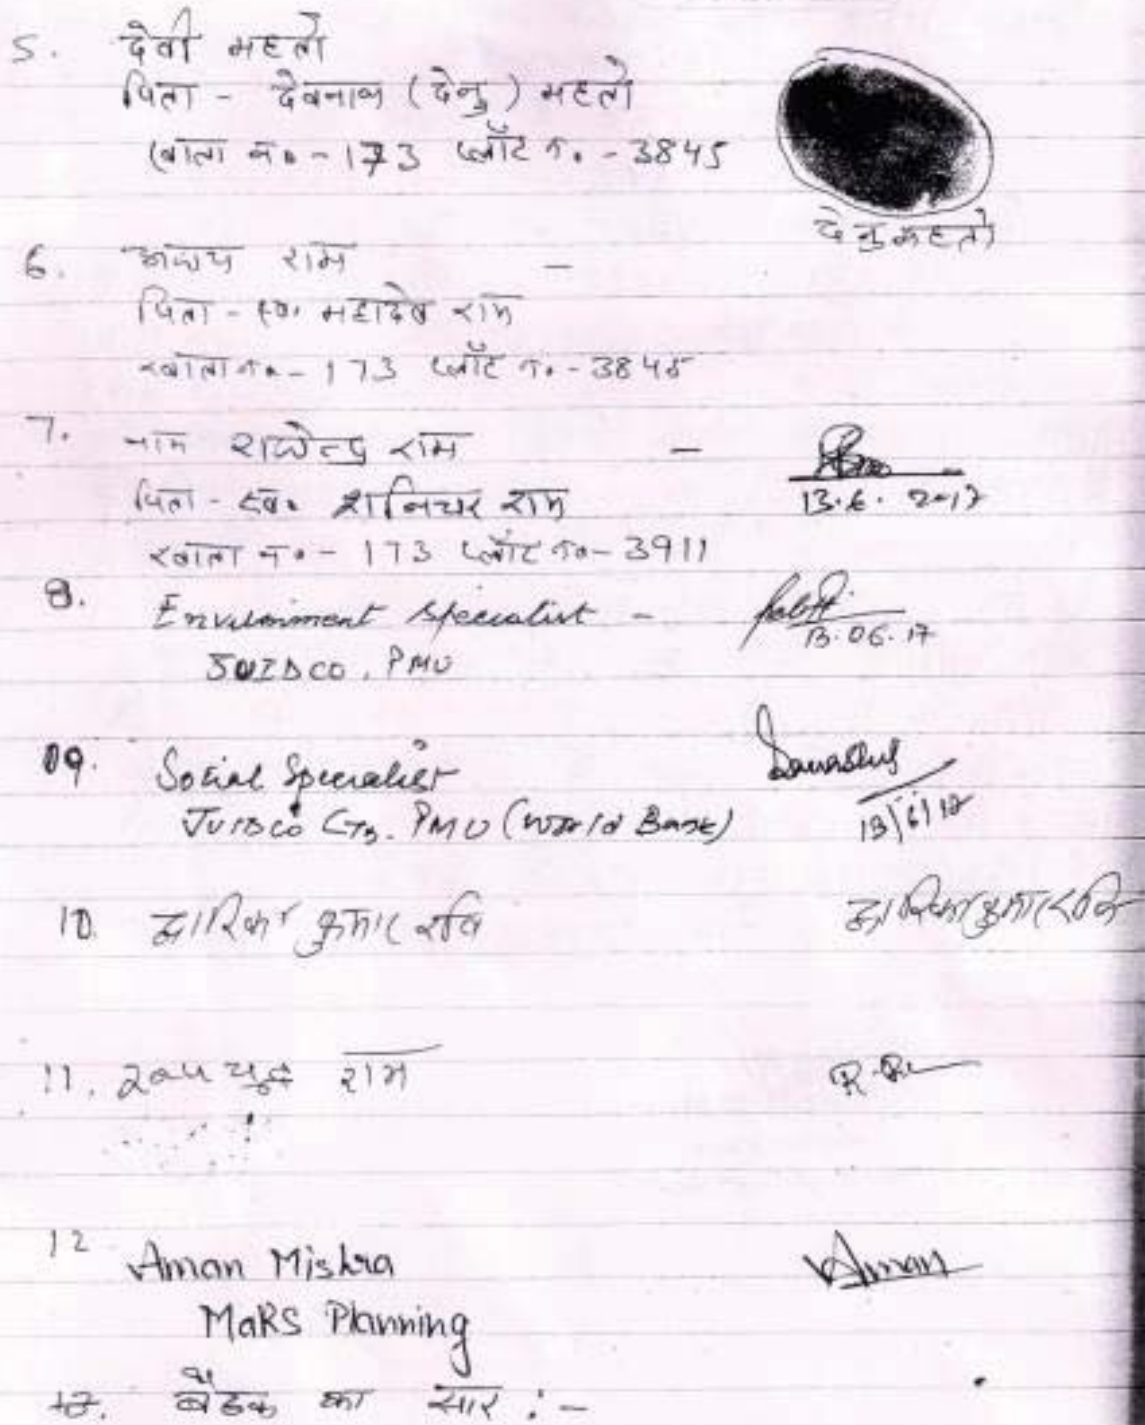 5. देवी महतो
पिता - देवनाथ (देनु) महतो
खाता न० - 173 प्लॉट न. - 3845
देनु महतो
6. अजय राम -
पिता - स्व. महादेव राम
खाता न० - 173 प्लॉट न. - 3845
7. नाम राजेन्द्र राम -
13.6.2017
पिता - स्व. शनिचर राम
खाता न० - 173 प्लॉट न० - 3911
8. Envuironment specialist -
13.06.17
JUIDCO, PMU
09. Social Specialist
JUIDCO Ltd. PMU (World Bank)
13/6/17
10. द्वारिका कुमार रवि द्वारिका कुमार रवि
11. राम
12 Aman Mishra Aman
MaRS Planning
बैठक का सार :-